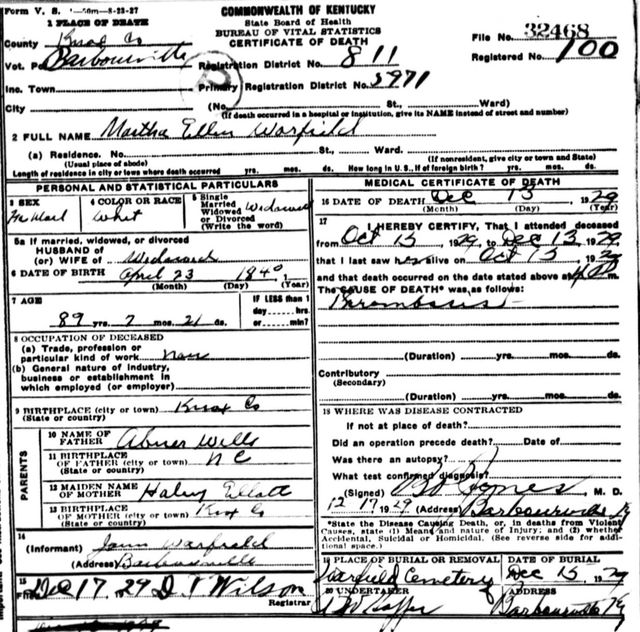 Form V. S. 8-23-27
COMMONWEALTH OF KENTUCKY
State Board of Health
BUREAU OF VITAL STATISTICS
CERTIFICATE OF DEATH
1 PLACE OF DEATH
County Knox Co
Vot. P Barbourville Registration District No. 811
File No. 32468
Registered No. 100
Inc. Town Primary Registration District No. 5971
City (No. St., Ward)
(If death occurred in a hospital or institution, give its NAME instead of street and number)
2 FULL NAME Martha Ellen Warfield
(a) Residence. No. St., Ward.
(Usual place of abode) (If nonresident, give city or town and State)
Length of residence in city or town where death occurred yrs. mos. ds. How long in U. S., if of foreign birth? yrs. mos. ds.
PERSONAL AND STATISTICAL PARTICULARS
3 SEX 4 COLOR OR RACE 5 Single Married Widowed or Divorced (Write the word) Widowed
5a If married, widowed, or divorced
HUSBAND of
(or) WIFE of
6 DATE OF BIRTH April 23 1840
(Month) (Day) (Year)
7 AGE IF LESS than 1 day hrs. or min?
89 yrs. 7 mos. 21 ds.
8 OCCUPATION OF DECEASED
(a) Trade, profession or
particular kind of work
(b) General nature of industry,
business or establishment in
which employed (or employer)
9 BIRTHPLACE (city or town) Knox Co
(State or country)
PARENTS
10 NAME OF FATHER Abner Wills
11 BIRTHPLACE OF FATHER (city or town) NC
(State or country)
12 MAIDEN NAME OF MOTHER
13 BIRTHPLACE OF MOTHER (city or town) Knox Co
(State or country)
14
(Informant) Warfield
(Address) Barbourville
15
Dec 17. 29 D T Wilson
Registrar
MEDICAL CERTIFICATE OF DEATH
16 DATE OF DEATH Dec 13 1929
(Month) (Day) (Year)
17
I HEREBY CERTIFY, That I attended deceased
from Oct 15, 1929, to Dec 13 1929
that I last saw h alive on Oct 15, 1929
and that death occurred on the date stated above at
The CAUSE OF DEATH* was as follows:
Thrombosis
(Duration) yrs. mos. ds.
Contributory
(Secondary)
(Duration) yrs. mos. ds.
18 WHERE WAS DISEASE CONTRACTED
If not at place of death?
Did an operation precede death? Date of
Was there an autopsy?
What test confirmed diagnosis?
(Signed) Jones, M. D.
12 17 1929 (Address) Barbourville Ky
*State the Disease Causing Death, or, in deaths from Violent
Causes, state (1) Means and nature of Injury; and (2) whether
Accidental, Suicidal or Homicidal. (See reverse side for addi-
tional space.)
19 PLACE OF BURIAL OR REMOVAL DATE OF BURIAL
Warfield Cemetery Dec 15, 1929
20 UNDERTAKER Address
Barbourville Ky